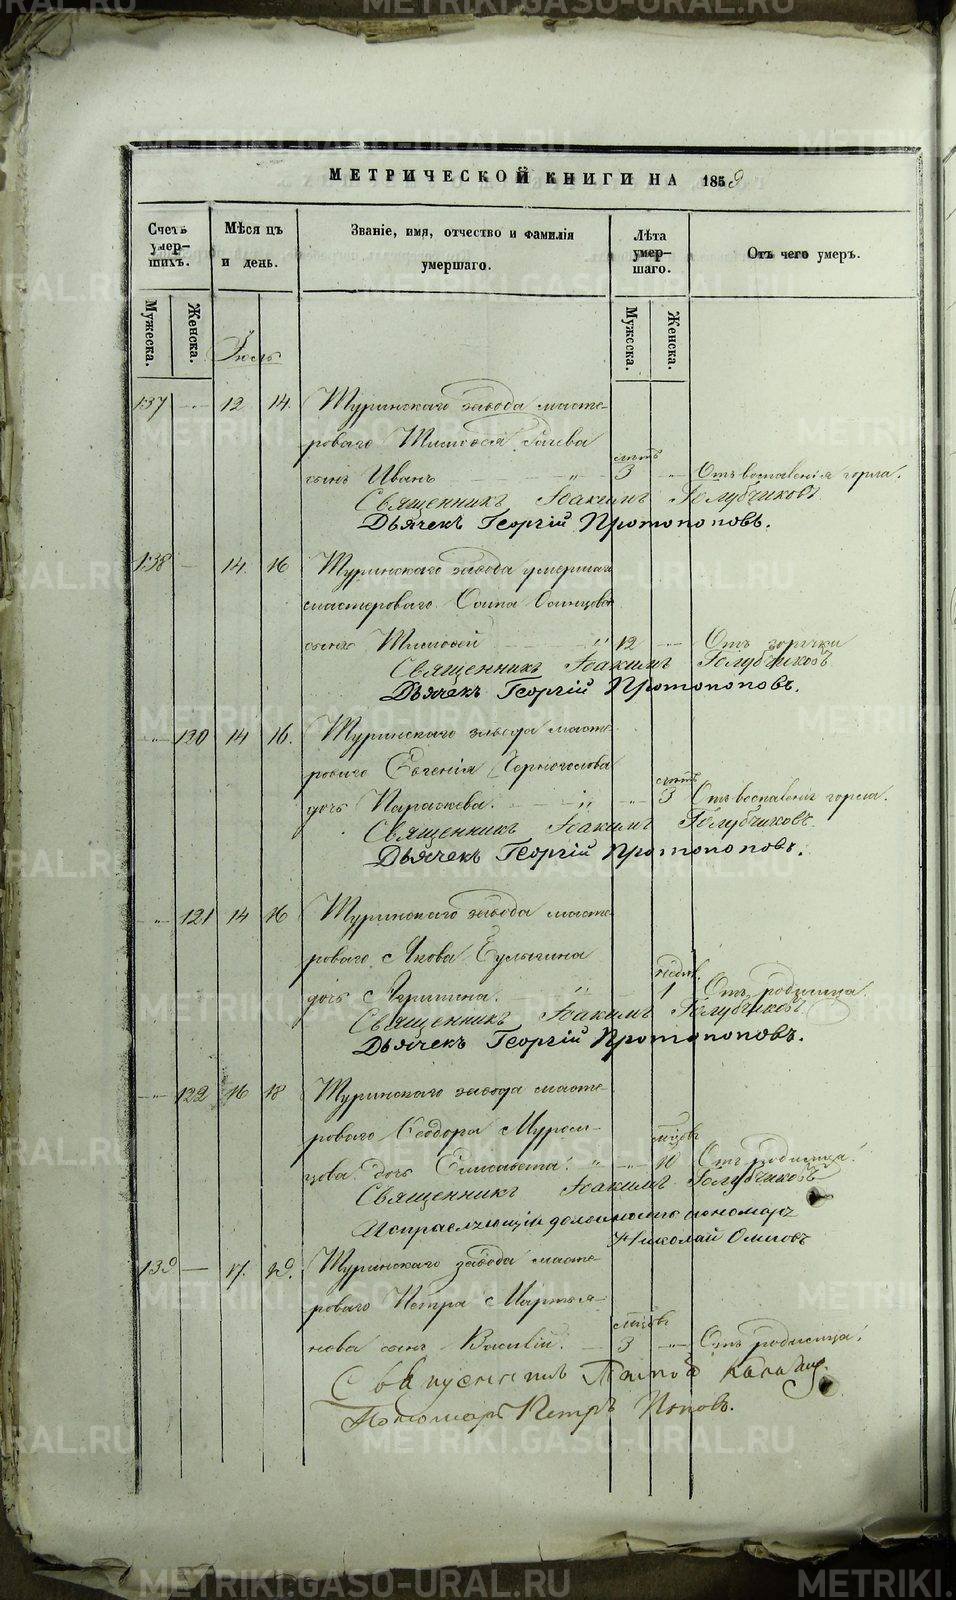 МЕТРИЧЕСКОЙ КНИГИ НА 1859
Счетъ умер- шихъ.
Мѣсяцъ и день.
Званіе, имя, отчество и фамилія умершаго.
Лѣта умер- шаго.
Отъ чего умеръ.
Мужеска. Женска. Мужеска. Женска.
Іюль
137 12 14. Туринскаго завода масте-
роваго Тимофея
сынъ Иванъ лѣтъ 3 Отъ воспаленія горла.
Священникъ Іоакимъ Голубчиковъ
Дьячекъ Георгій Протопоповъ.
138 14. 16 Туринскаго завода умершаго
мастероваго Осипа
сынъ Тимофей 12 Отъ горячки
Священникъ Іоакимъ Голубчиковъ
Дьячекъ Георгій Протопоповъ.
120 14 16. Туринскаго завода масте-
роваго Евгенія Черноголова
дочь Параскева. лѣтъ 3 Отъ воспаленія горла.
Священникъ Іоакимъ Голубчиковъ
Дьячекъ Георгій Протопоповъ.
121 14 16 Туринскаго завода масте-
роваго Якова Булыгина
дочь Агрипина. недѣл. 1 Отъ родимца.
Священникъ Іоакимъ Голубчиковъ
Дьячекъ Георгій Протопоповъ.
122 16 18 Туринскаго завода масте-
роваго Ѳеодора Муром-
цова дочь Елисавета. мѣсцовъ 10 Отъ родимца.
Священникъ Іоакимъ Голубчиковъ
Исправляющій должность пономаря
Николай Осиповъ
139 17. 19. Туринскаго завода масте-
роваго Петра Мартья-
нова сынъ Василій. мѣсцовъ 3 Отъ родимца.
Священникъ
Пономарь Петръ Поповъ.
METRIKI.GASO-URAL.RU